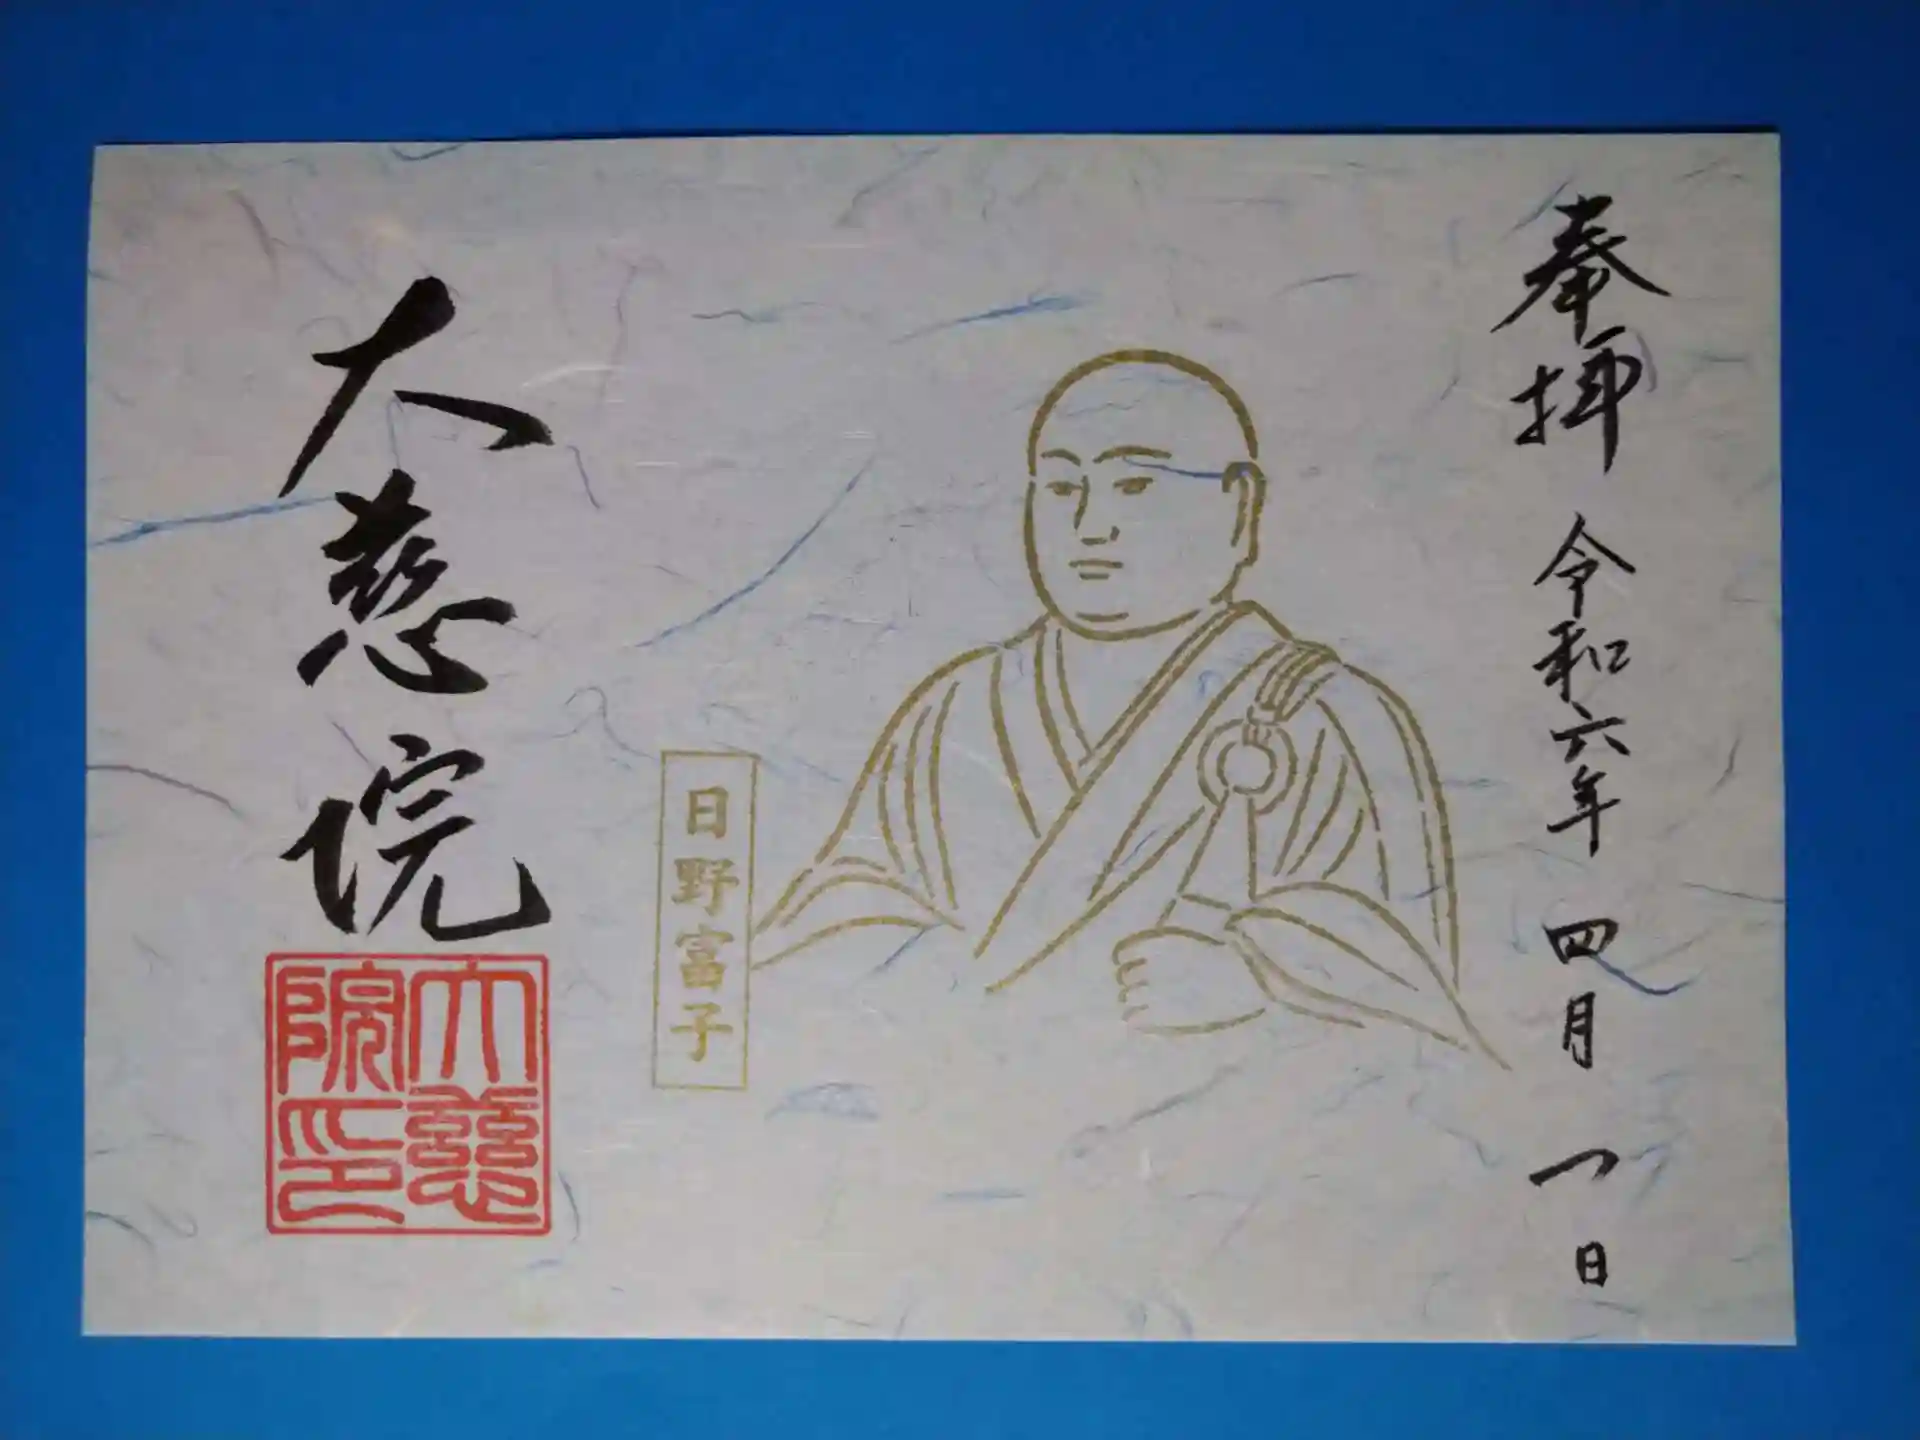 奉拝 令和六年 四月 一日
日野富子
大慈院
大慈院印